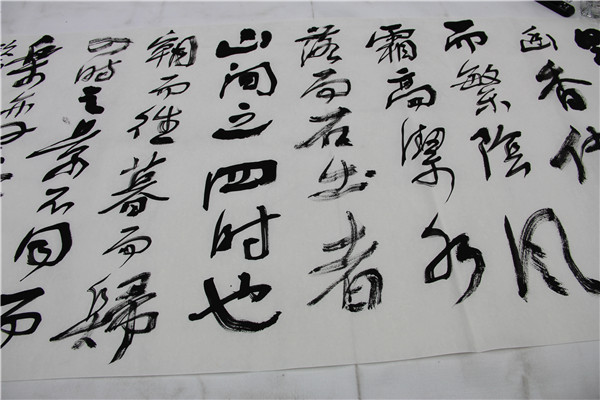 幽香佳
而繁陰风
霜高潔水
落而石出者
山间之四时也
朝而往暮而歸
四時之景不同而
樂亦